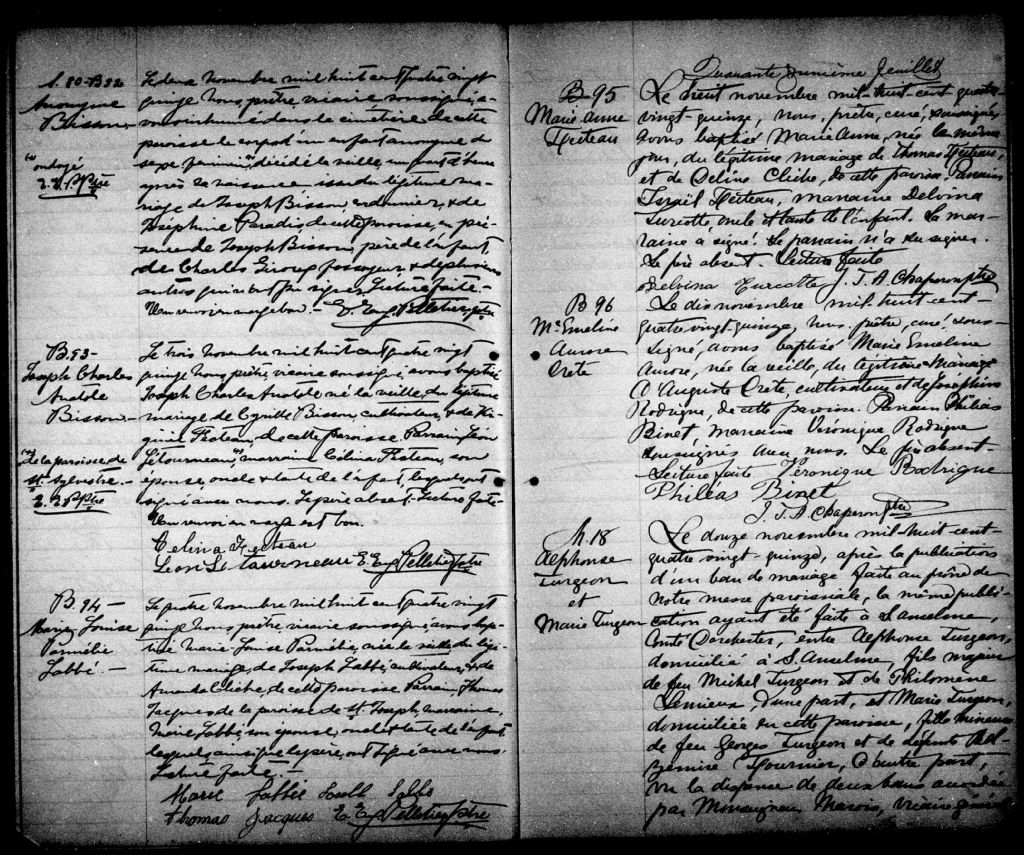 S. 80-B92
Anonyme
Bisson
ondoyé
E. E. P. Ptre
Le deux Novembre mil huit cent quatre vingt
quinze Nous, prêtre, vicaire soussigné, a-
vons inhumé dans le cimetière de cette
paroisse le corps d'un enfant anonyme du
sexe féminin, décédé la veille, un quart d'heure
après sa naissance, issu du légitime ma-
riage de Joseph Bisson cordonnier, & de
Joséphine Paradis, de cette paroisse, en pré-
sence de Joseph Bisson, père de l'enfant,
de Charles Giroux fossoyeur, & de plusieurs
autres qui n'ont pu signer. Lecture faite.
Un renvoi en marge bon. - E. Eug Pelletier, ptre
B.93-
Joseph Charles
Anatole
Bisson
de la paroisse de
St. Sylvestre.
E. E. P. Ptre
Le trois Novembre mil huit cent quatre vingt
quinze Nous, prêtre, vicaire soussigné, avons baptisé
Joseph Charles Anatole né la veille, du légitime
mariage de Cyrille Bisson, cultivateur, & de
Fecteau, de cette paroisse Parrain Léon
Létourneau, marraine Célina Fecteau, son
épouse, oncle & tante de l'enfant, lesquels ont
signé avec nous. Le père absent. Lecture faite.
Un renvoi en marge est bon.
Celina Fecteau
Leon Letourneau E. Eug Pelletier Ptre
B.94 -
Marie Louise
Parmélie
Labbé -
Le quatre Novembre mil huit cent quatre vingt
quinze Nous, prêtre, vicaire soussigné, avons bap-
tisé Marie Louise Parmélie, née la veille du légi-
time mariage de Joseph Labbé, cultivateur, & de
Amanda Cliche, de cette paroisse Parrain, Thomas
Jacques de la paroisse de St. Joseph, marraine,
Marie Labbé, son épouse, oncle & tante de l'enfant,
lesquels, ainsi que le père, ont signé avec nous.
Lecture faite. -
Marie Labbée Joseph Labbé
Thomas Jacques E. Eug Pelletier Ptre
Quarante Feuillet
B-95
Marie Anne
Fecteau
Le huit novembre mil-huit-cent quatre
vingt-quinze, nous, prêtre, curé, soussigné,
avons baptisé Marie Anne, née le même
jour, du légitime mariage de Thomas Fecteau,
et de Celina Cliche, de cette paroisse. Parrain
Israël Fecteau, marraine Delvina
Turcotte, oncle et tante de l'enfant. La mar-
raine a signé. Le parrain n'a su signer.
Le père absent. Lecture faite
Delvina Turcotte J. T. A. Chaperon Ptre
B 96
Me Emeline
Aurore
Crête
Le dix novembre mil-huit-cent-
quatre vingt-quinze, Nous prêtre, curé, sous-
signé, avons baptisé Marie Emeline
Aurore, née la veille, du légitime Mariage
d'Auguste Crête, cultivateur et de Joséphine
Rodrigue, de cette paroisse. Parrain Philias
Binet, Marraine Véronique Rodrigue
soussignés avec nous. Le père absent-
Lecture faite Veronique Rodrigue
Philéas Binet
J. T. A Chaperon Ptre
M. 18
Alphonse
Turgeon
et
Marie Turgeon
Le douze novembre mil-huit-cent-
quatre vingt-quinze, après la publication
d'un ban de mariage faite au prône de
notre messe paroissiale, la même publi-
cation ayant été faite à St Anselme,
Comté Dorchester, entre Alphonse Turgeon,
domicilié à S. Anselme, fils majeur
de feu Michel Turgeon et de Philomène
Lemieux, d'une part, et Marie Turgeon,
domiciliée en cette paroisse, fille mineure
de feu Georges Turgeon et de défunte
Fournier, d'autre part,
vu la dispense de deux bans accordée
par Monseigneur Marois, vicaire général